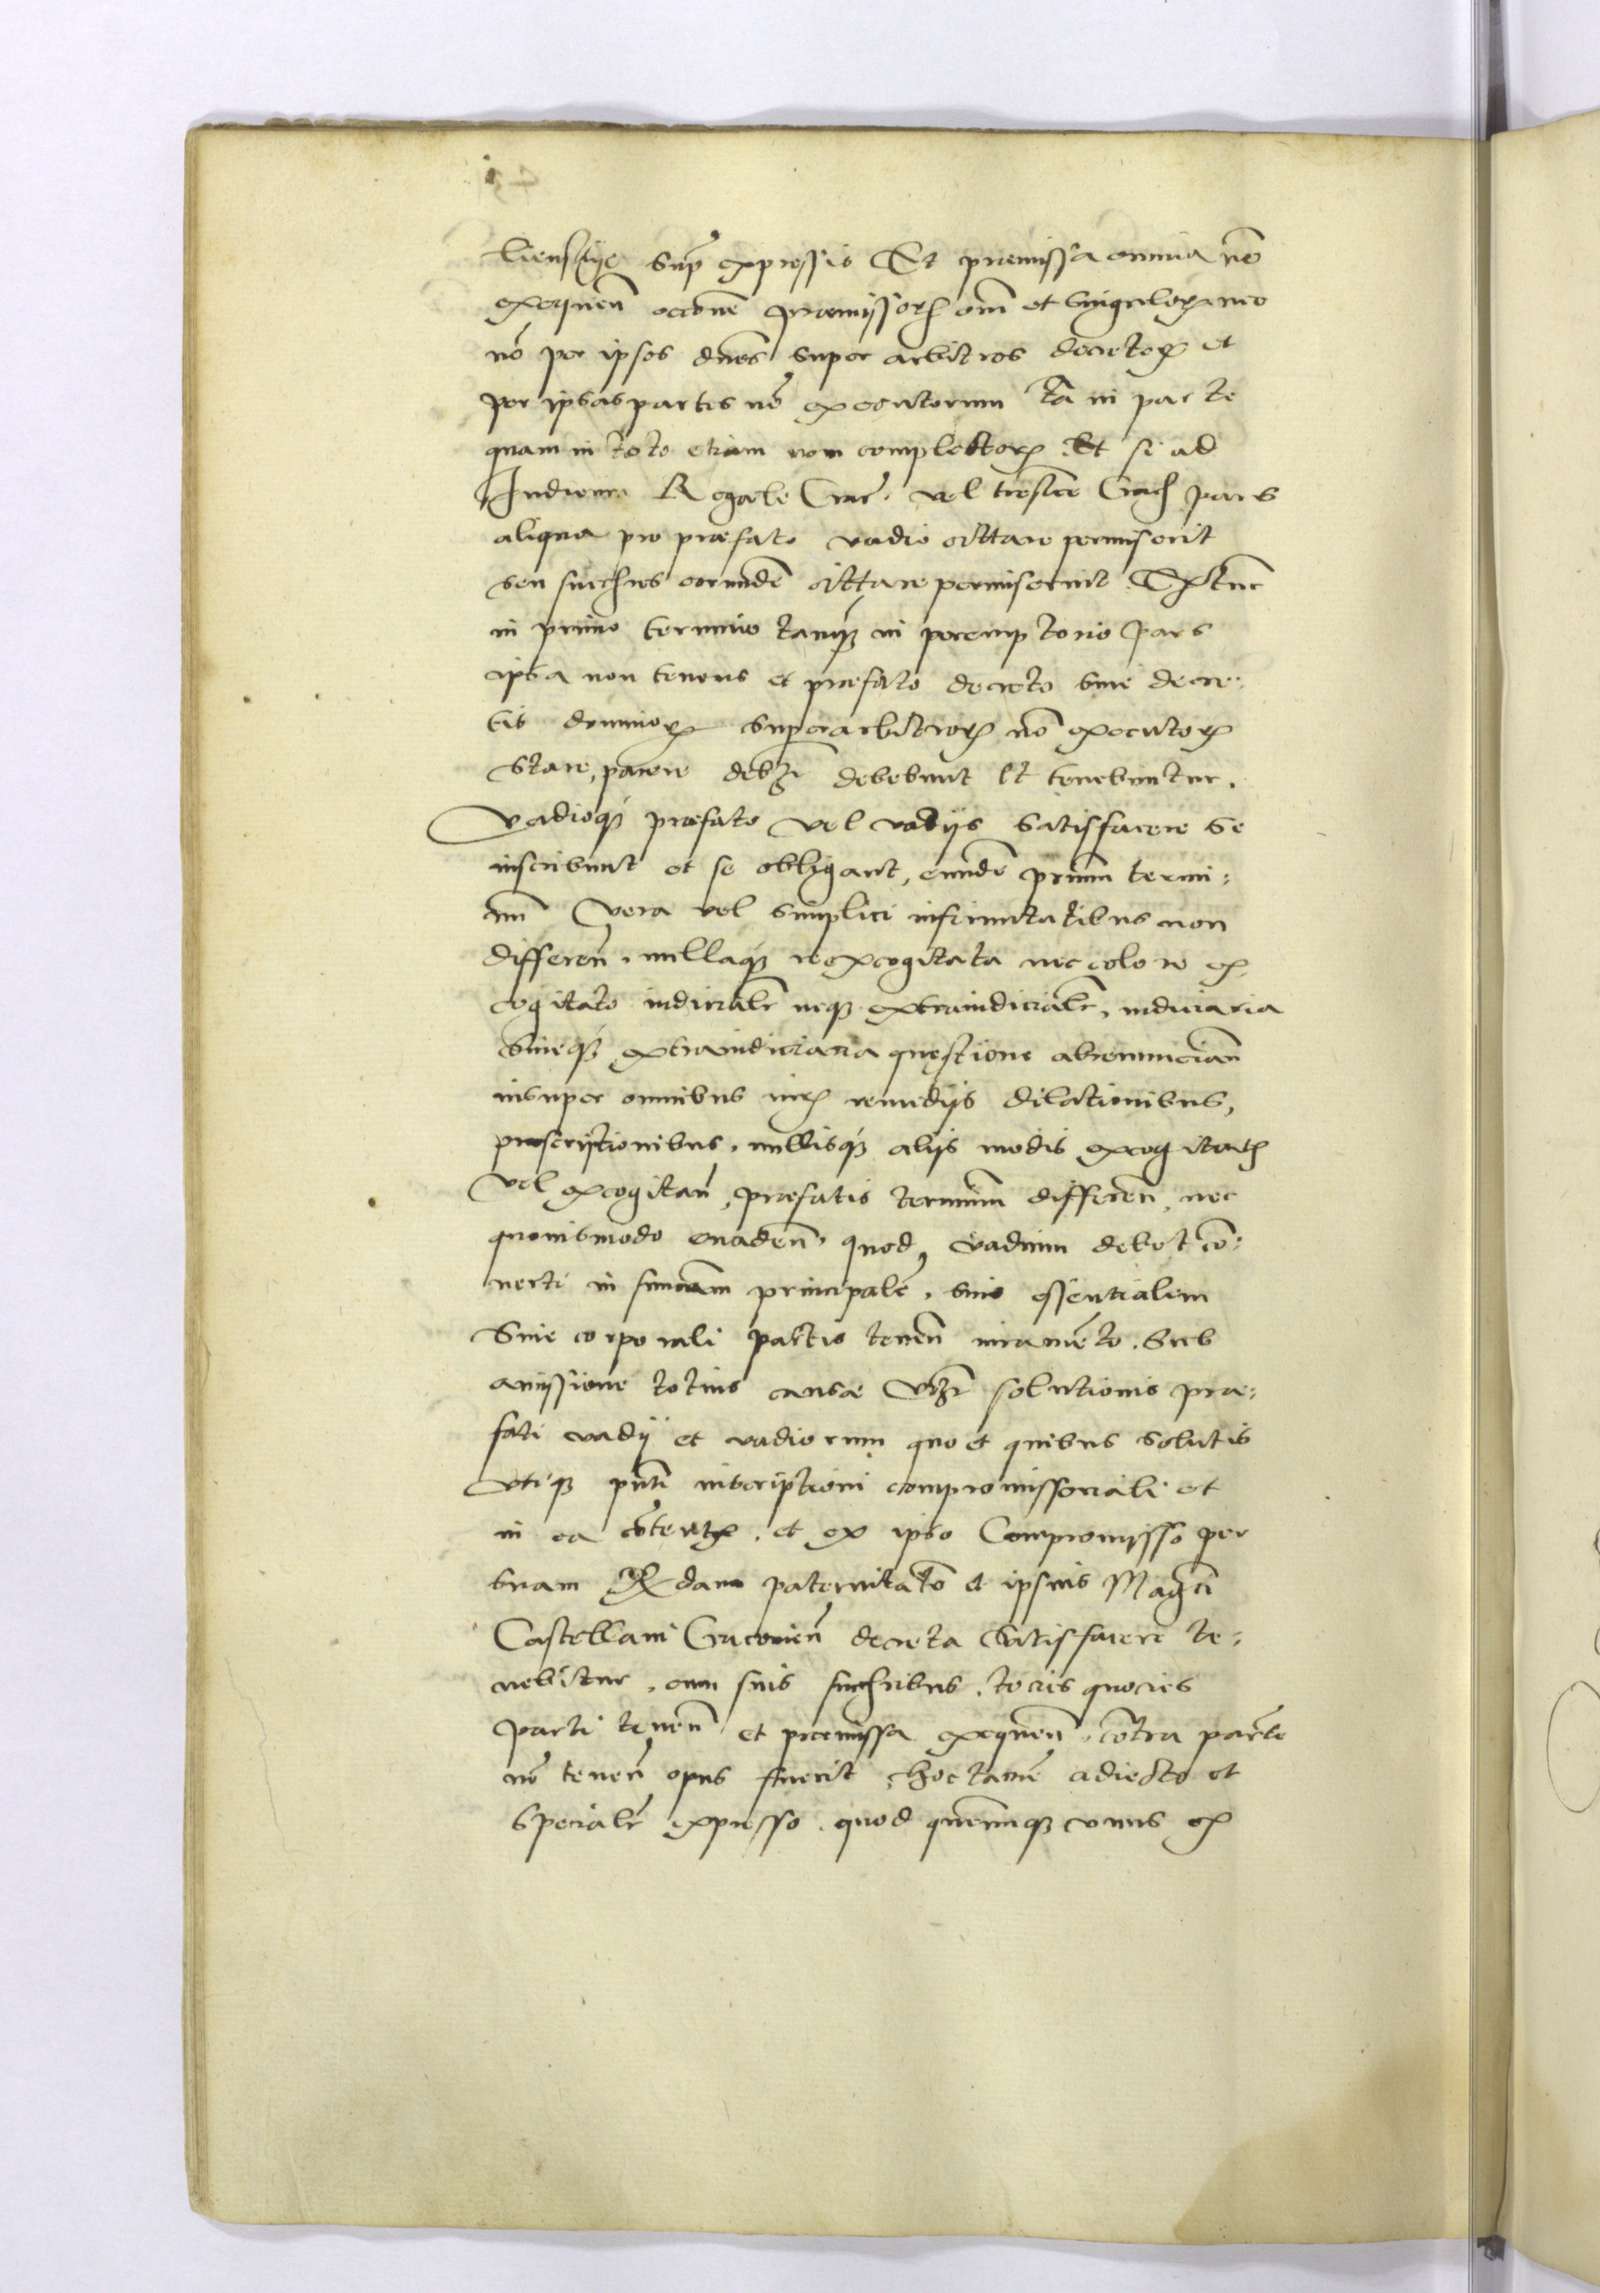 supra expressis Et praemissa omnia nō
exequeñ racōne praemissorꝶ om̄ et singulorꝶ nec
nō per ipsos dnōs super arbitros decretorꝶ et
per ipsas partes nō executorum tā in parte
quam in toto etiam non completorꝶ. Et si ad
Iudiciū Regale Crac̄. vel Crach pars
aliqua pro praefato vadio cittare permiserit
seu succesřes eorundē cittare permiserint. Extunc
in primo termino tamqꝫ in peremptorio pars
ipsa non tenens et praefato decreto siue decre-
tis dominorꝶ superarbitrorꝶ nō executorꝶ
stare, parere debebunt et tenebuntur.
Vadioqꝫ praefato vel vadijs satisfacere se
inscribunt et se obligant, eundē primū termi-
nū vera vel simplici infirmitatibus non
differeñ. nullaqꝫ re excogitata nec colore ex-
cogitato iudicialr̄ neqꝫ extraiudicialr̄, iudiciaria
siueqꝫ extraiudiciaria quęstione abrenuncian̄
insuper omnibus iurꝭ remedijs dilationibus,
praescriptionibus. nullisqꝫ alijs modis excogitatꝭ
vel excogitan̄, praefatis terminū differen̄, nec
quouismodo euaden̄. quod vadium debet cō-
uerti in sum̄am principalē. siue essentialem
siue corporali partis tenen̄ iuramēto. sub
amissione totius causae vz̄ solutionis prae-
fati vadij et vadiorum quo et quibus solutis
vtiqꝫ pn̄ti inscriptioni compromissoriali et
in ea cōtentꝭ. et ex ipso Compromisso per
suam Rx̄dam paternitatē et ipsius Maḡci
Castellani Cracouien̄ decreta satisfacere te-
nebitur. cum suis succesřibus. tocies quocies
parti tenen̄ et praemissa exequen̄. cōtra partē
nō tenen̄ opus fuerit, hoc tamē adiecto et
specialr̄ expresso. quod quēcunqꝫ vnus ex